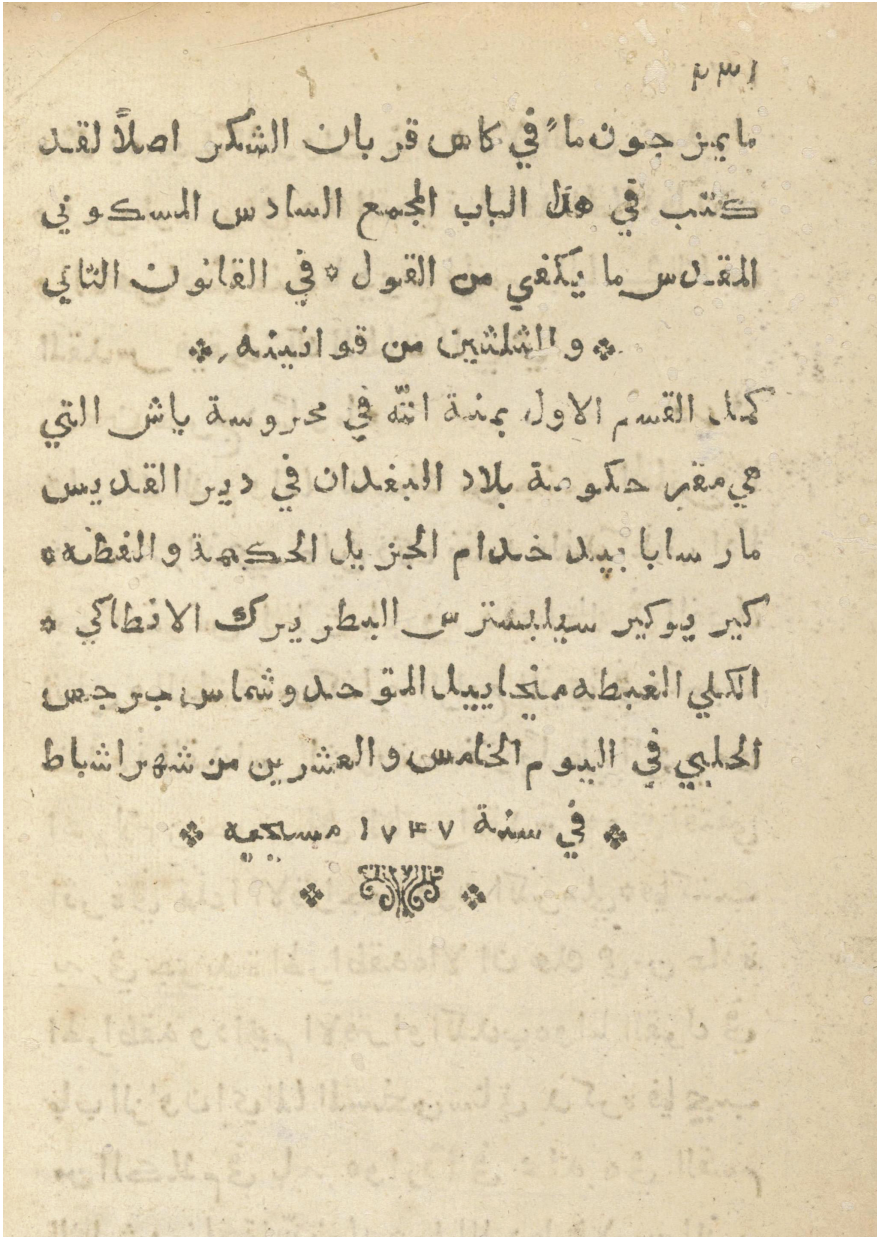 ٢٣١
ما يمزجون ماءً في كاس قربان الشكر اصلاً لقد
كتب في هذا الباب المجمع السادس المسكوني
المقدس ما يكفي من القول * في القانون الثاني
* والثلثين من قوانينه *
كمل القسم الاول بمنة الله في محروسة ياش التي
هي مقر حكومة بلاد البغدان في دير القديس
مار سابا بيد خدام الجزيل الحكمة والفطنه *
كير يوكير سيلبسترس البطريرك الانطاكي *
الكلي الغبطه ميخاييل المتوحد وشماس جرجس
الحلبي في اليوم الخامس والعشرين من شهر اشباط
* في سنة ١٧٤٧ مسيحيه *